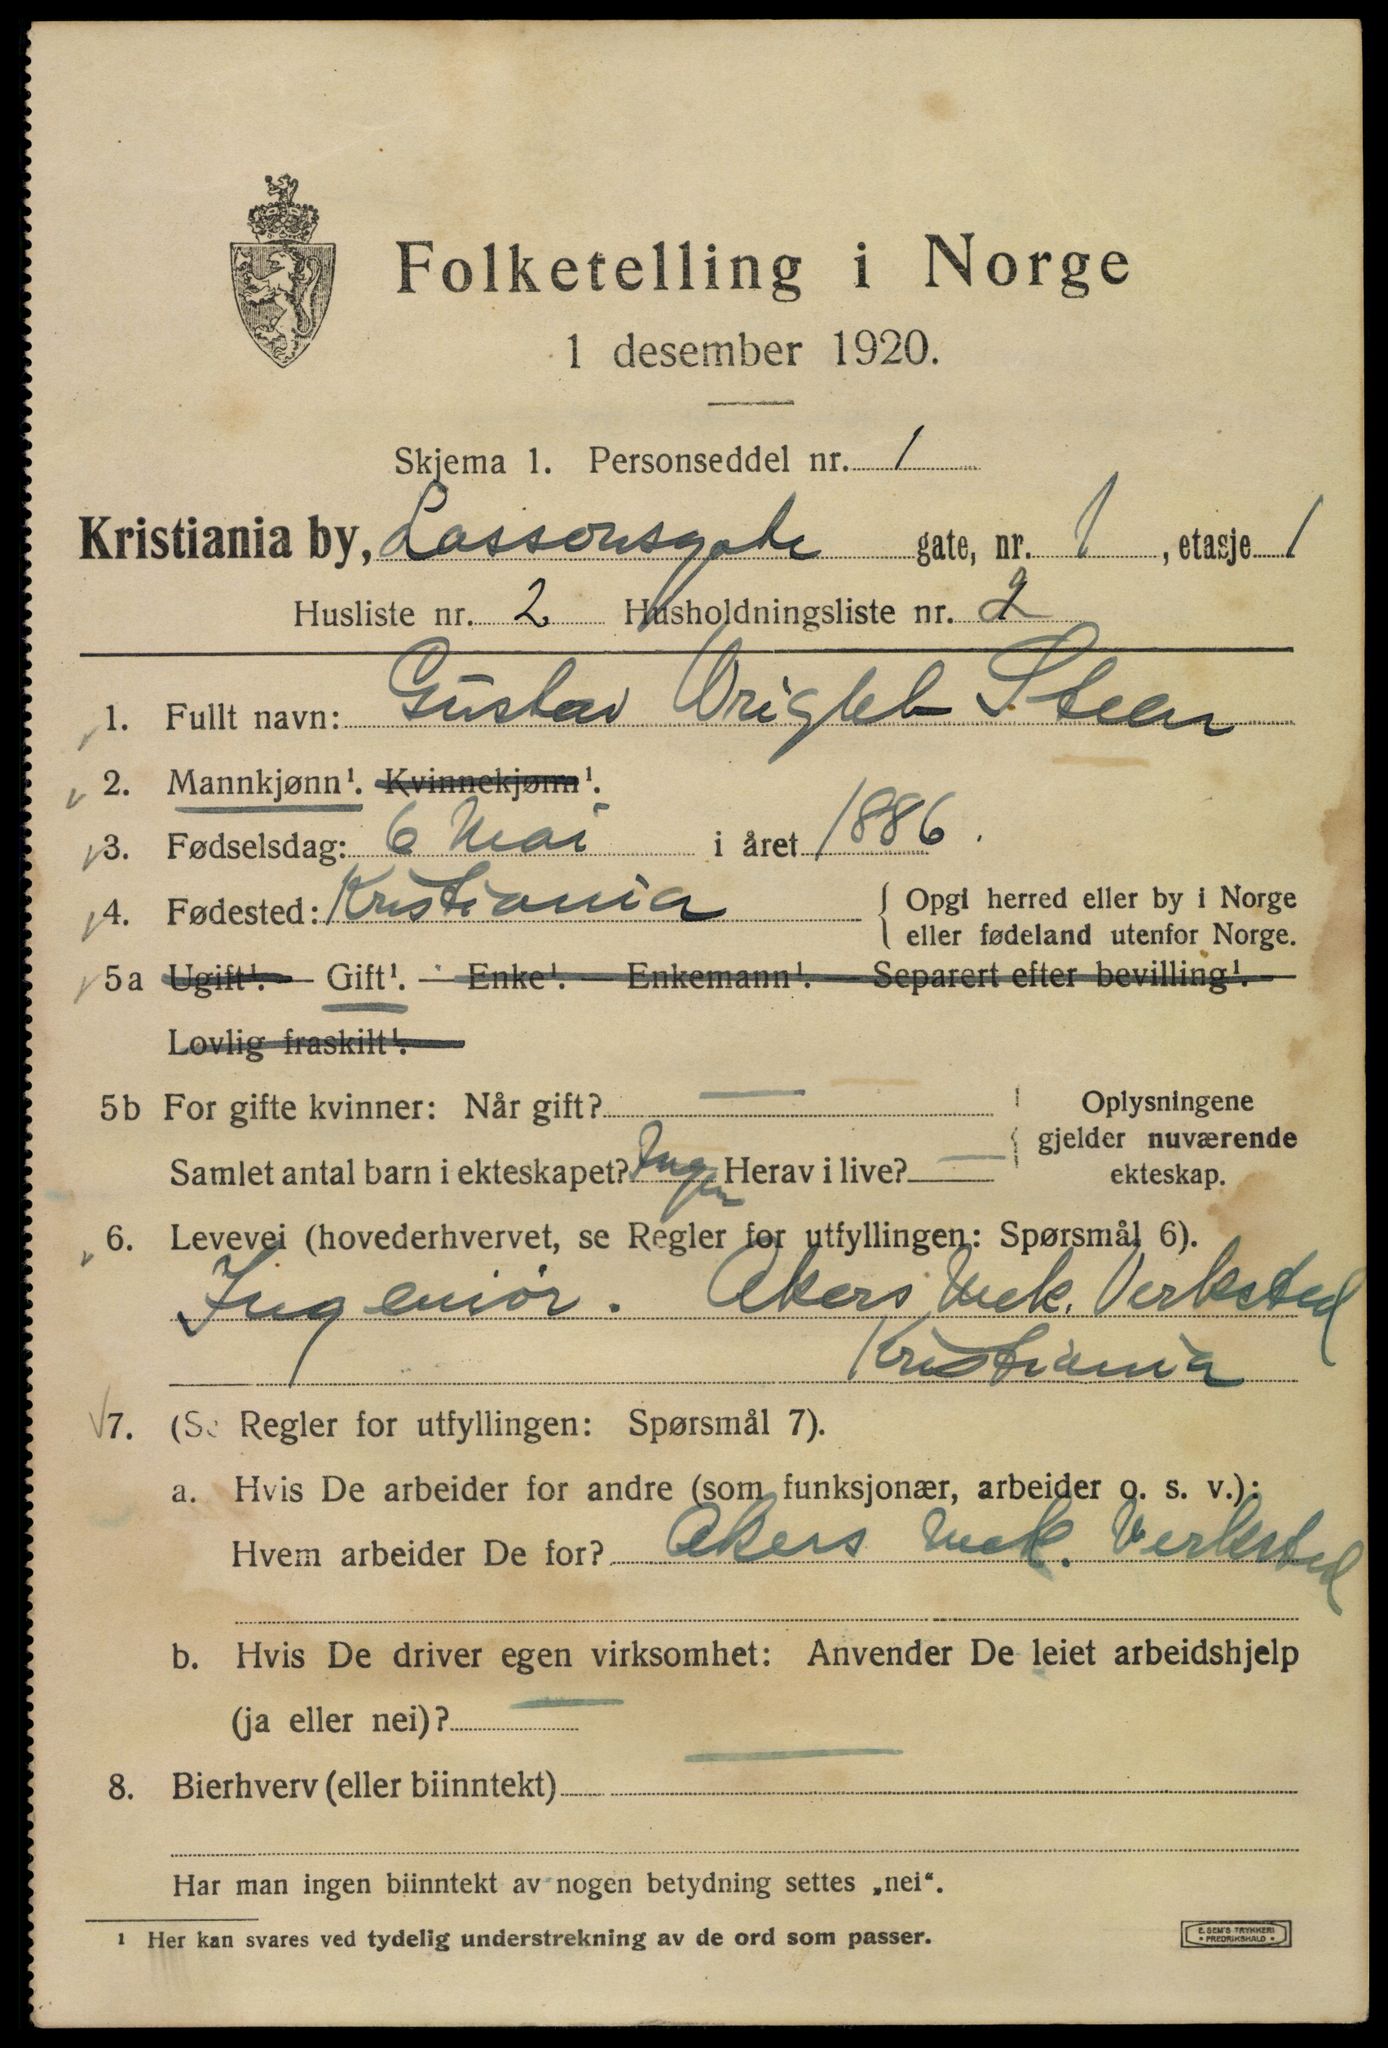 Folketelling i Norge
1 desember 1920.
Skjema 1. Personseddel nr. 1
Kristiania by, Lassonsgate gate, nr. 1, etasje 1
Husliste nr. 2 Husholdningsliste nr. 2
1. Fullt navn: Gustav Steen
2. Mannkjønn¹. Kvinnekjønn¹.
3. Fødselsdag: 6 Mai i året 1886.
4. Fødested: Kristiania { Opgi herred eller by i Norge
eller fødeland utenfor Norge.
5a Ugift¹. — Gift¹. — Enke¹. — Enkemann¹. — Separert efter bevilling¹. —
Lovlig fraskilt¹.
5b For gifte kvinner: Når gift? —
Samlet antal barn i ekteskapet? Ingen Herav i live? —
Oplysningene
gjelder nuværende
ekteskap.
6. Levevei (hovederhvervet, se Regler for utfyllingen: Spørsmål 6).
Ingeniør. Akers Mek. Verksted
Kristiania
7. (Se Regler for utfyllingen: Spørsmål 7).
a. Hvis De arbeider for andre (som funksjonær, arbeider o. s. v.):
Hvem arbeider De for? Akers Mek. Verksted
b. Hvis De driver egen virksomhet: Anvender De leiet arbeidshjelp
(ja eller nei)? —
8. Bierhverv (eller biinntekt) —
Har man ingen biinntekt av nogen betydning settes „nei“.
¹ Her kan svares ved tydelig understrekning av de ord som passer.
E. SEM'S TRYKKERI
• FREDRIKSHALD •